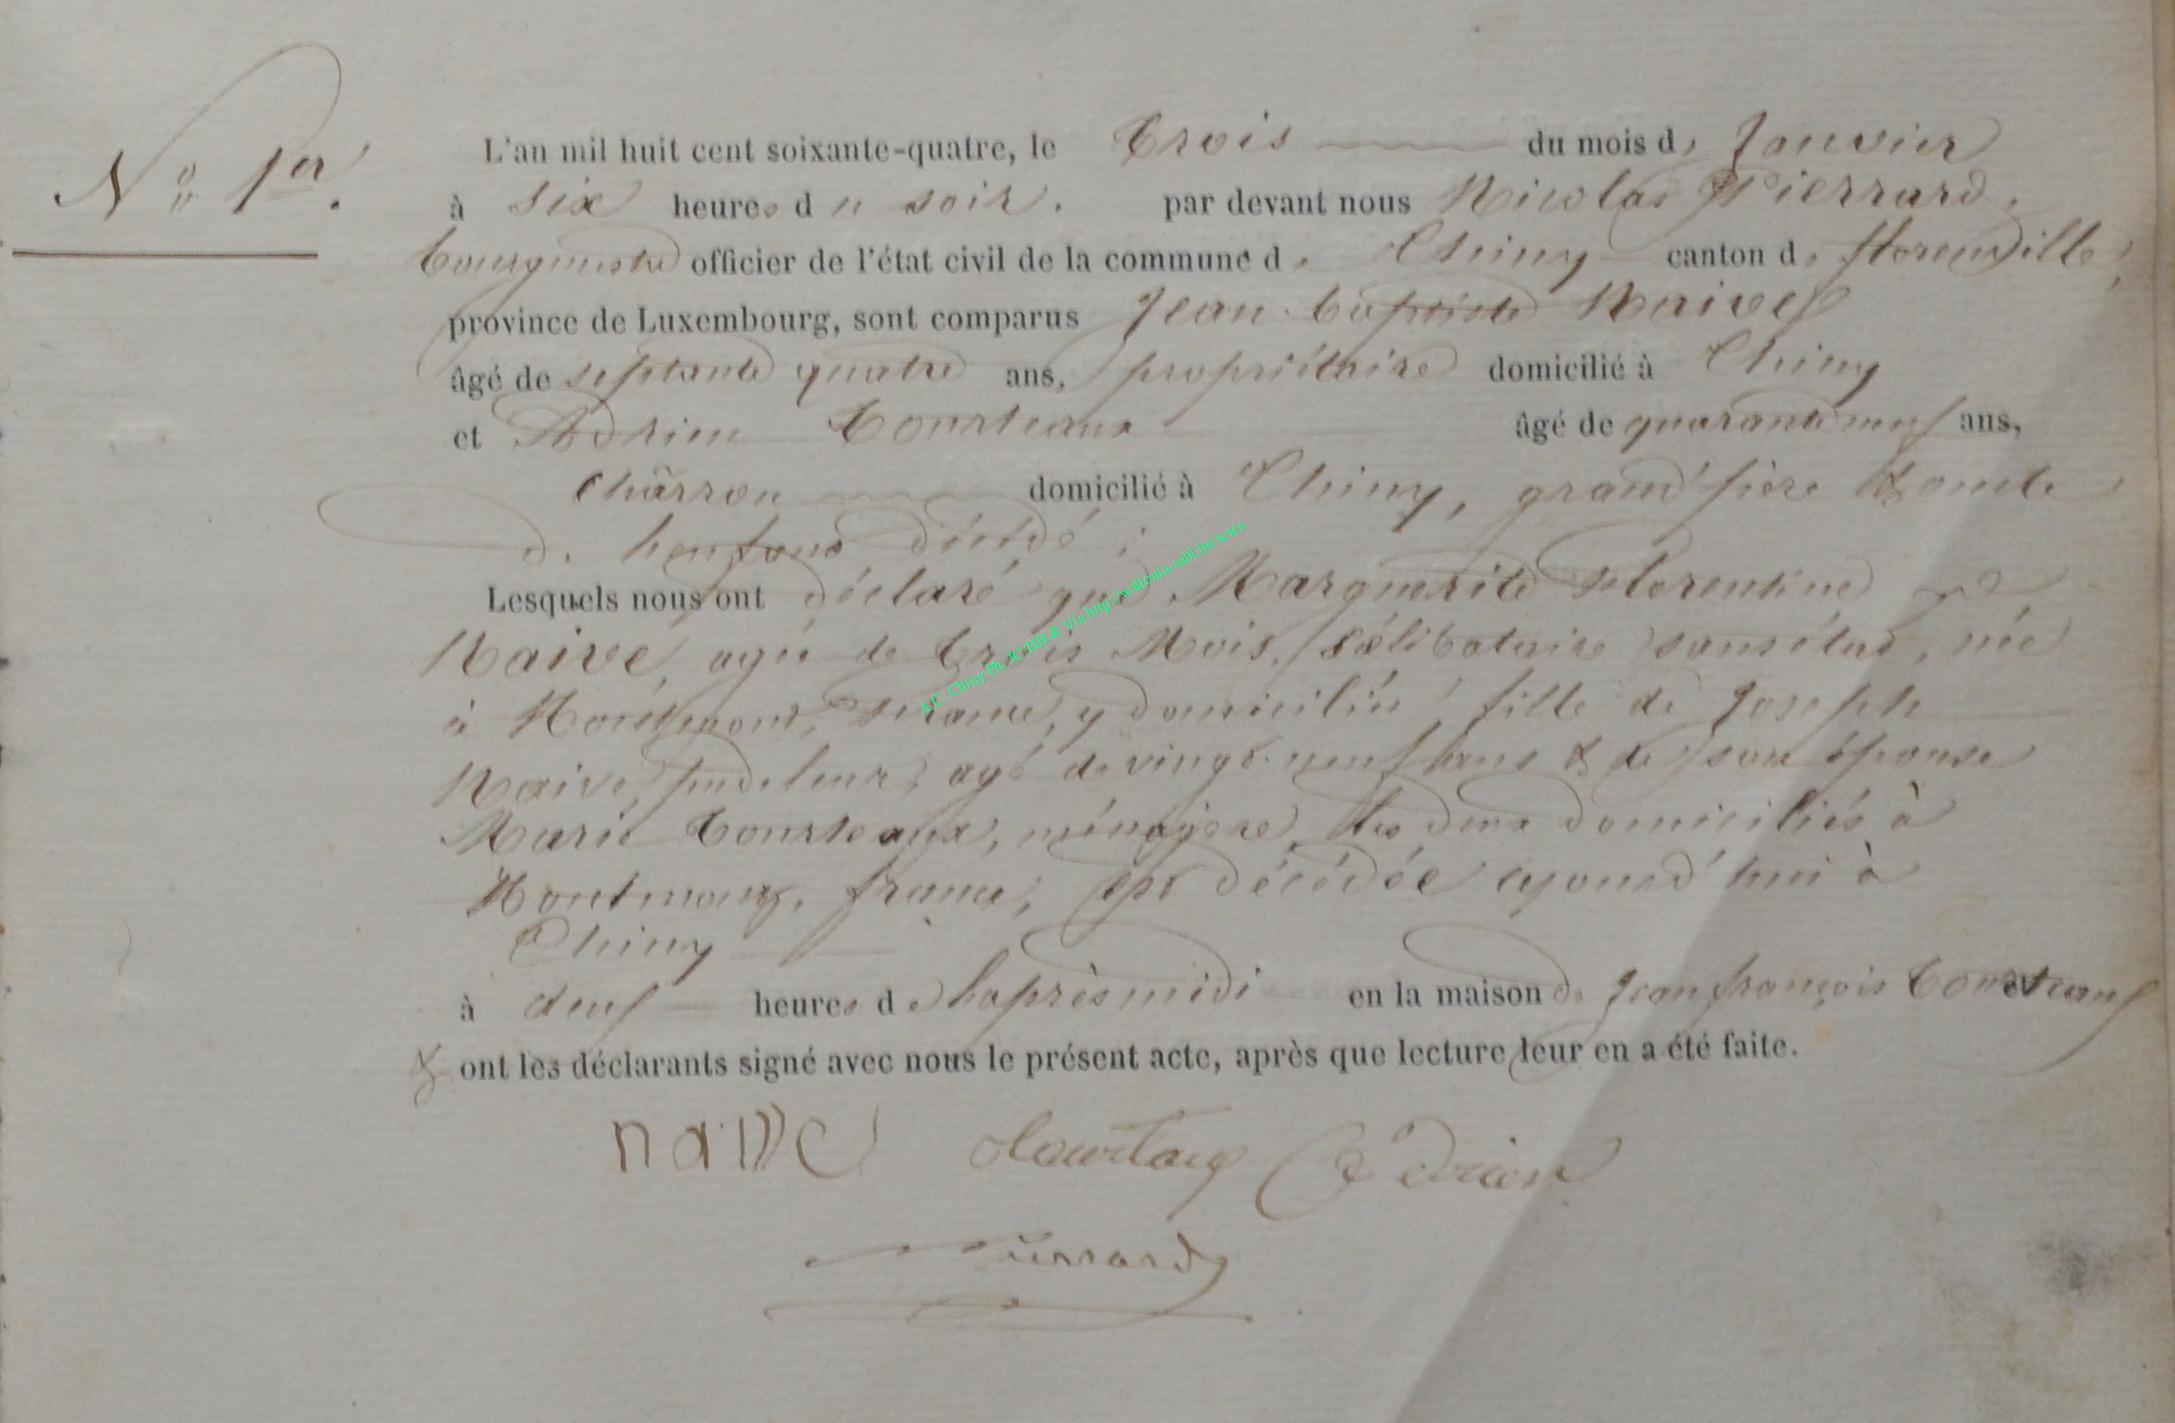 N° 1er.
L'an mil huit cent soixante-quatre, le trois du mois de Janvier
à six heures du soir. par devant nous Nicolas Pierrard,
bourgmestre officier de l'état civil de la commune de Chiny canton de florenville,
province de Luxembourg, sont comparus Jean baptiste Naive
âgé de septante quatre ans, propriétaire domicilié à Chiny
et Adrien Courteaux âgé de quarante neuf ans,
Chârron domicilié à Chiny, grand'père & oncle
de l'enfant décédé ;
Lesquels nous ont déclaré que Marguerite Florentine
Naive, agée de trois Mois, célibataire sans état, née
à, France, y domiciliée, fille de Joseph
Naive, pudeleur, agé de vingt-neuf ans & de son épouse
Marie Courteaux, ménagère, les deux domiciliés à
france, est décédée ajourd'hui à
Chiny
à deux heures de l'après midi en la maison de Jean françois Courteaux
& ont les déclarants signé avec nous le présent acte, après que lecture leur en a été faite.
naive Courtaux Adrien
Pierrard
A.C. Chiny Ph. JC/TIB © Via http://wallonia-asbl.be/actes